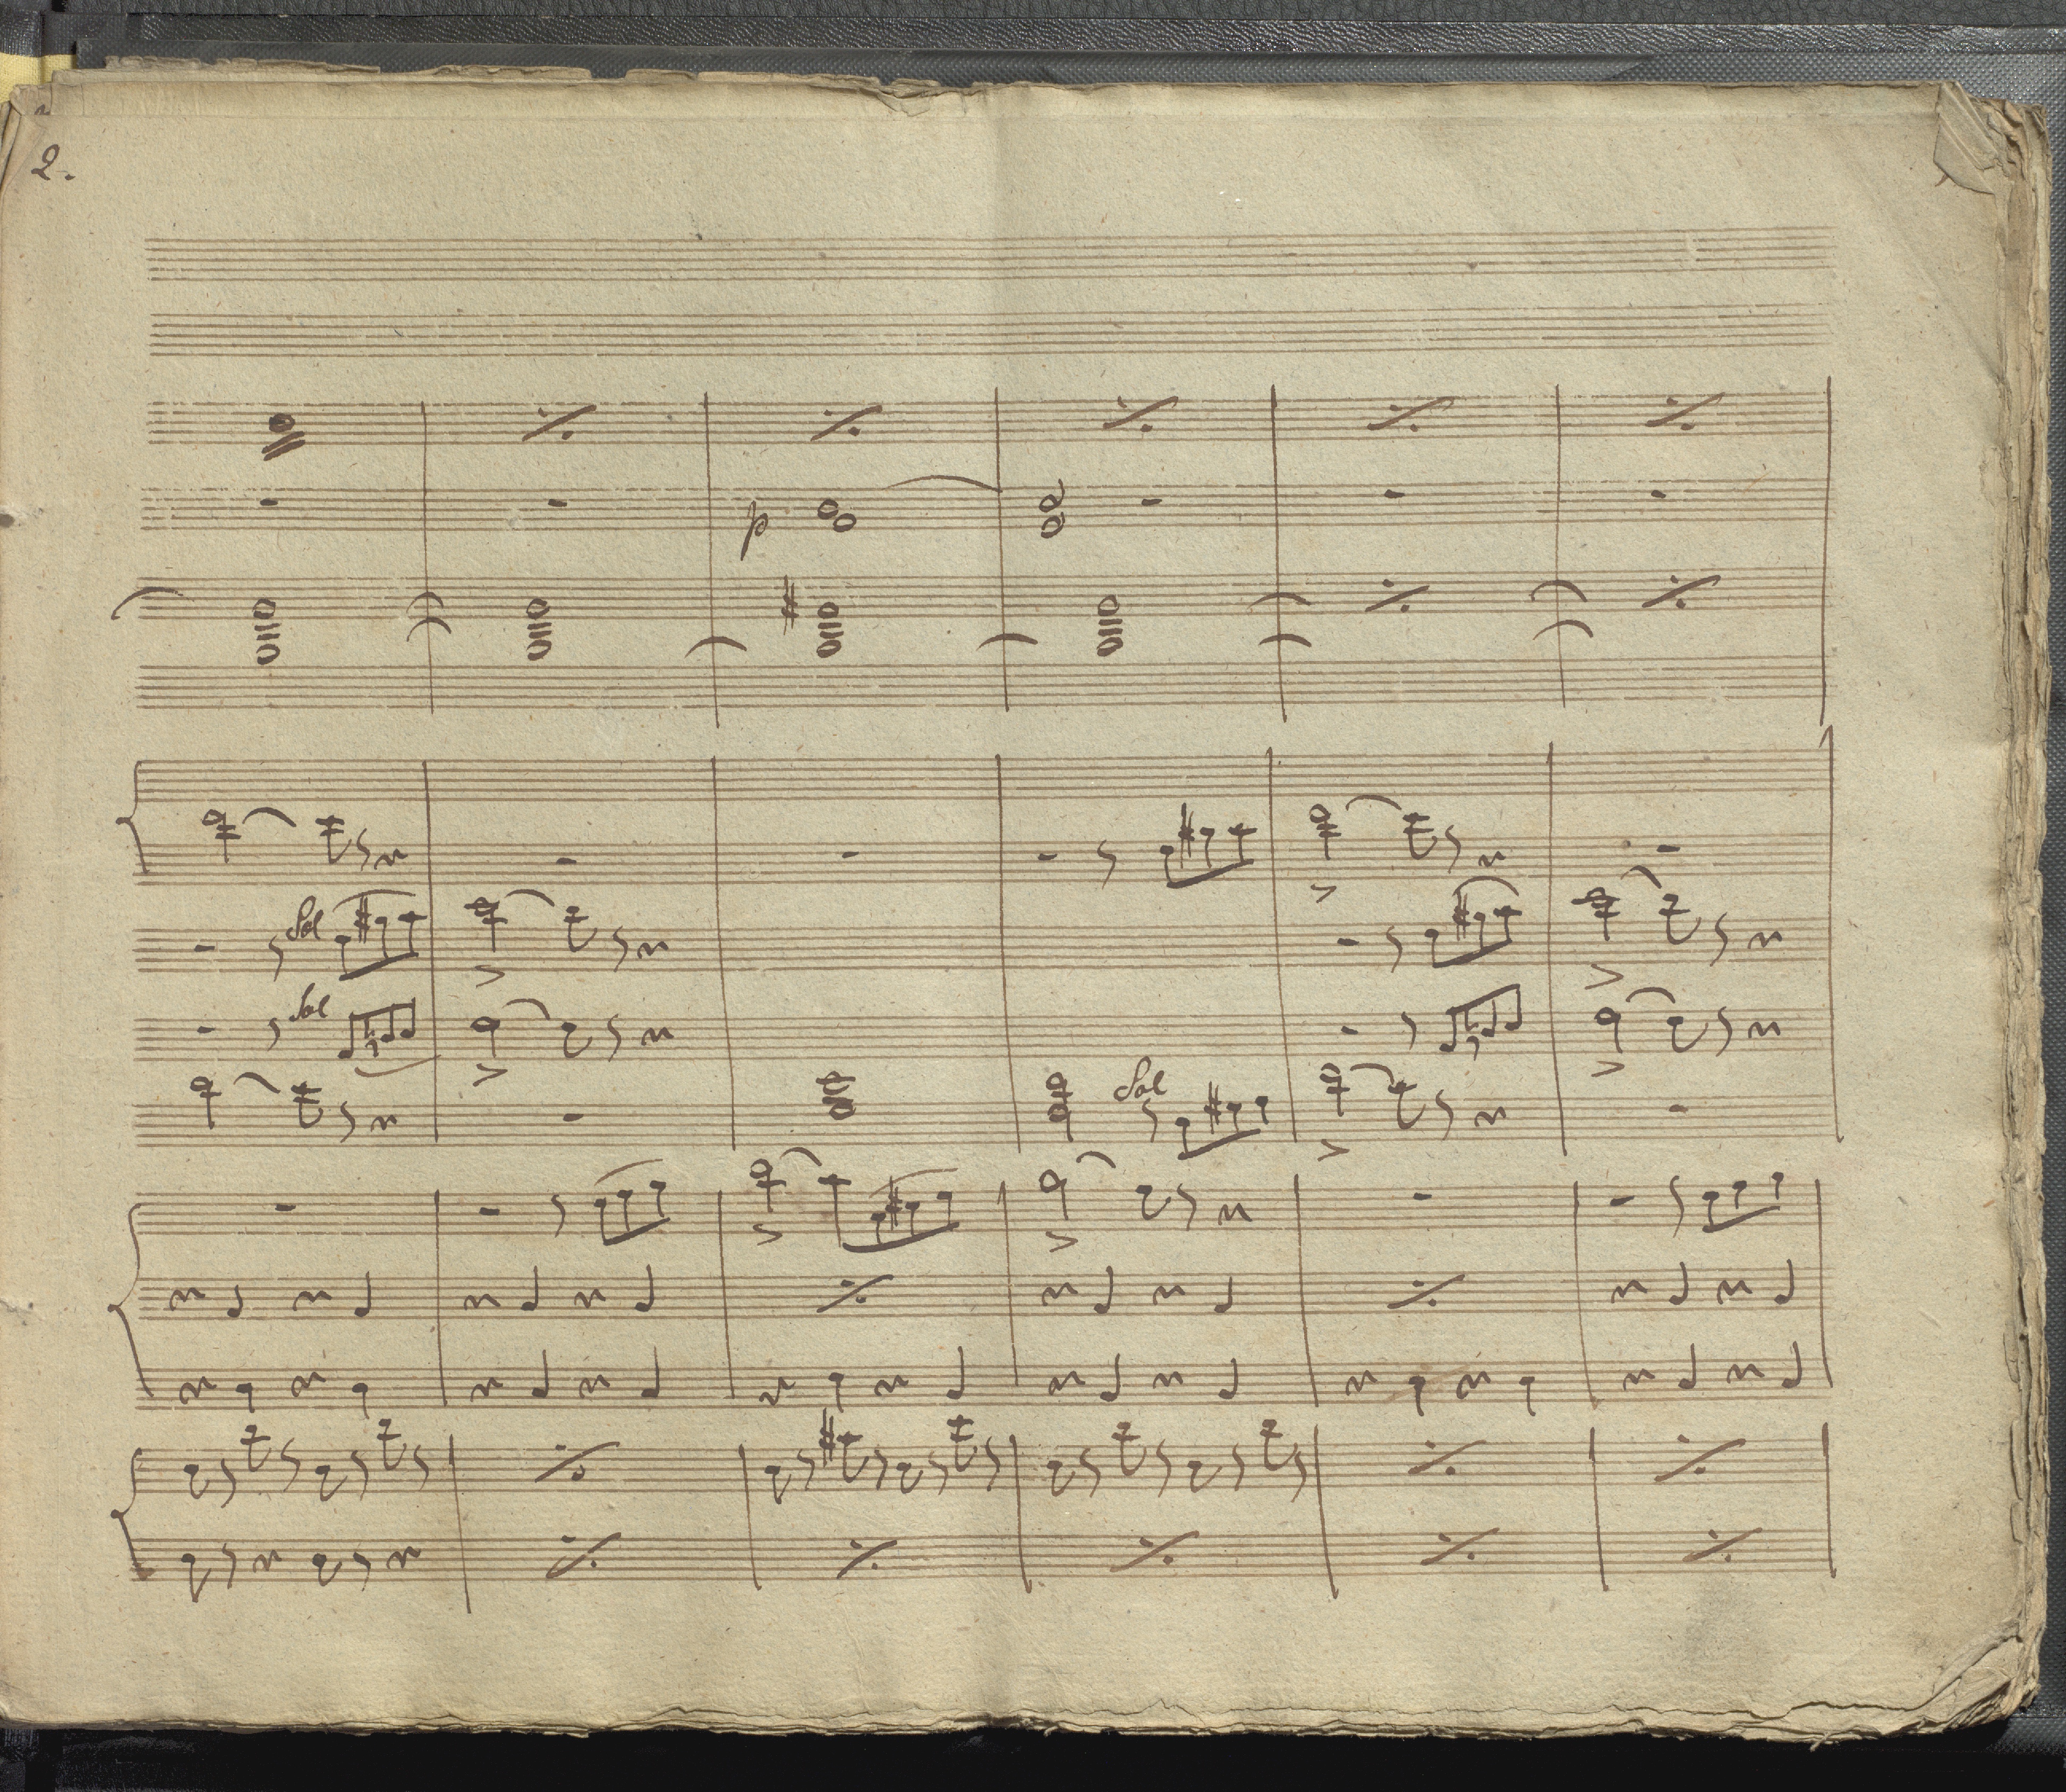 2.
p
Sol
Sol
Sol